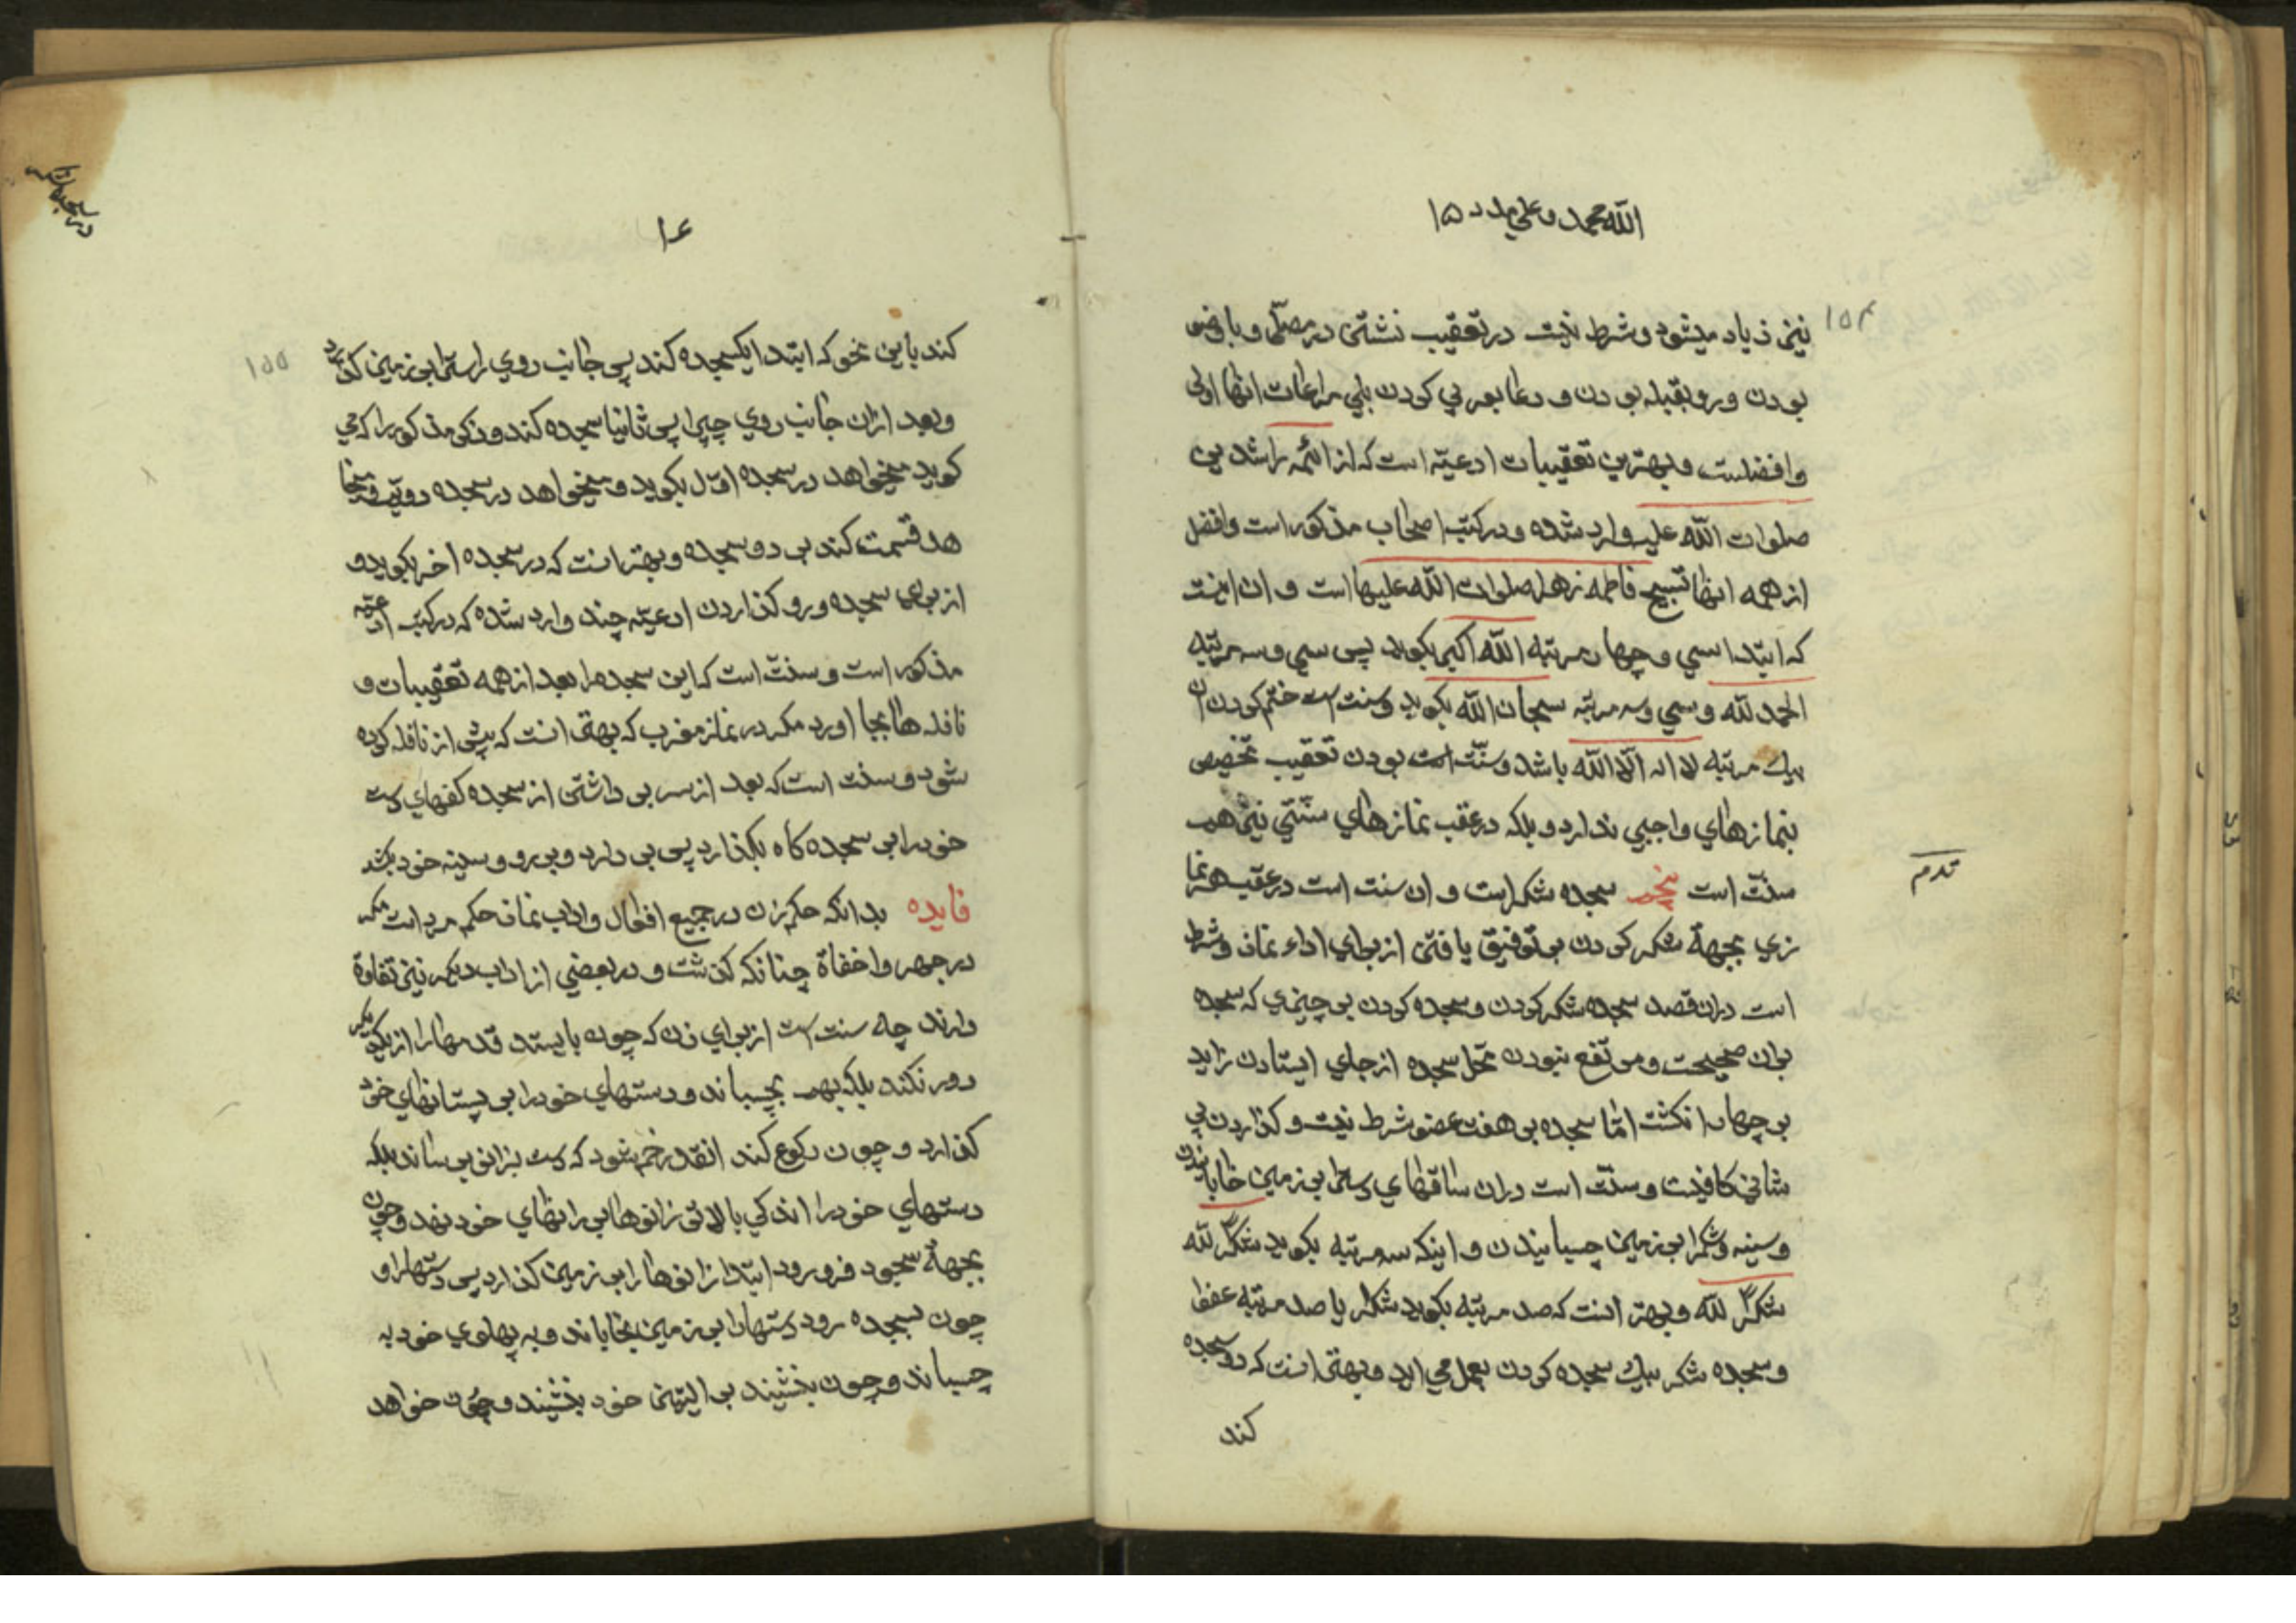 الله محمد و علي مدد ۱۵
۱۵۴
نیز زیاد میشود و شرط نیست در تعقیب نشستن در مصلّی و با وضو
بودن و رو بقبله بودن و دعا بعربي کردن بلي مراعات اینها اولی
و افضلست و بهترین تعقیبات ادعیّه است که از ائمه راشدین
صلوات الله علیه وارد شده و در کتب اصحاب مذکور است و افضل
از همه اینها تسبیح فاطمه زهرا صلوات الله علیها است و ان اینست
که ابتدا سي و چهار مرتبه الله اکبر بکوید پس سي و سه مرتبه
الحمد لله و سي و سه مرتبه سبحان الله بکوید و سنت است ختم کردن ان
بیك مرتبه لا اله الّا الله باشد و سنّت است بودن تعقیب تخصیص
بنمازهاي واجبي ندارد و بلکه در عقب نمازهاي سنّتي نیز هم
سنّت است پنجم سجده شکر است و ان سنت است در عقیب هر نما
زي بجهة شکر کردن بر توفیق یافتن از براي اداء نماز و شرط
است دران قصد سجده شکر کردن و سجده کردن بر چیزي که سجده
بران صحیحست و مرتفع نبودن محل سجده از جاي ایستادن زاید
بر چهار انکشت امّا سجده بر هفت عضو شرط نیست و کذاردن پي
شاني کافیست و سنّت است دران ساقهاي دست را بر زمین خابانیدن
و سینه و شکم را بر زمین چسبانیدن و اینکه سه مرتبه بکوید شکرًا لله
شکرًا لله و بهتر انست که صد مرتبه بکوید شکرا یا صد مرتبه عفوا
و سجده شکر بیك سجده کردن بعمل مي اید و بهتر انست که دو سجده
کند
۱۶
۱۵۵
کند باین نحو که ابتدا یکسجده کند پس جانب روي راست را بر زمین کذارد
و بعد ازان جانب روي چپ را پس ثانیا سجده کند و ذکر مذکور را که مي
کوید میخواهد در سجده اوّل بکوید و میخواهد در سجده دویّم و میخوا
هد قسمت کند بر دو سجده و بهتر انست که در سجده اخر بکوید و
از براي سجده و رو کذاردن ادعیّه چند وارد شده که در کتب ادعیّه
مذکور است و سنّت است که این سجده را بعد از همه تعقیبات و
نافله ها بجا اورد مکر در نماز مغرب که بهتر انست که پیش از نافله کرده
شود و سنت است که بعد از سر بر داشتن از سجده کفهاي دست
خود را بر سجده کاه بکذارد پس بر دارد و بر رو و سینه خود بکشد
فایده بدانکه حکم زن در جمیع افعال و اداب نماز حکم مرد است مکر
در جهر و اخفاة چنانکه کذشت و در بعضي از اداب دیکر نیز تفاوة
دارند چه سنت است از براي زن که چون بایستد قدمها را از یکدیکر
دور نکند بلکه بهم بچسباند و دستهاي خود را بر پستانهاي خود
کذارد و چون رکوع کند انقدر خم شود که دست بزانو برساند بلکه
دستهاي خود را اندکي بالاتر زانوها بر رانهاي خود نهد و چون
بجهة سجود فرو رود ابتدا زانوها را بر زمین کذارد پس دستها را و
چون بسجده رود دستها را بر زمین بخاباند و به پهلوي خود به
چسباند و چون بنشیند بر الیتین خود بنشیند و چون خواهد